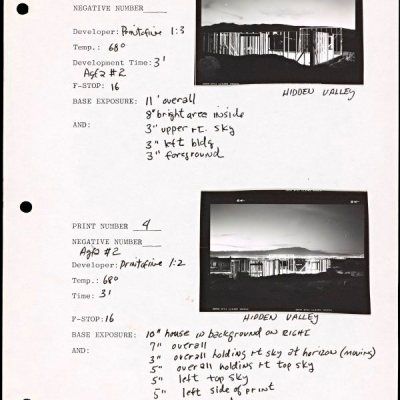 NEGATIVE NUMBER
Developer: Printofine 1:3
Temp.: 68°
Development Time: 3'
Agfa #2
F-STOP: 16
HIDDEN VALLEY
BASE EXPOSURE: 11" overall
8" bright area inside
AND: 3" upper rt. sky
3" left bldg
3" foreground
PRINT NUMBER 4
NEGATIVE NUMBER
Agfa #2
Developer: Printofine 1:2
Temp.: 68°
Time: 3'
F-STOP: 16
HIDDEN VALLEY
BASE EXPOSURE: 10" house in background on RIGHT
7" overall
AND: 3" overall holding rt sky at horizon (moving)
5" overall holding rt top sky
5" left top sky
5" left side of print